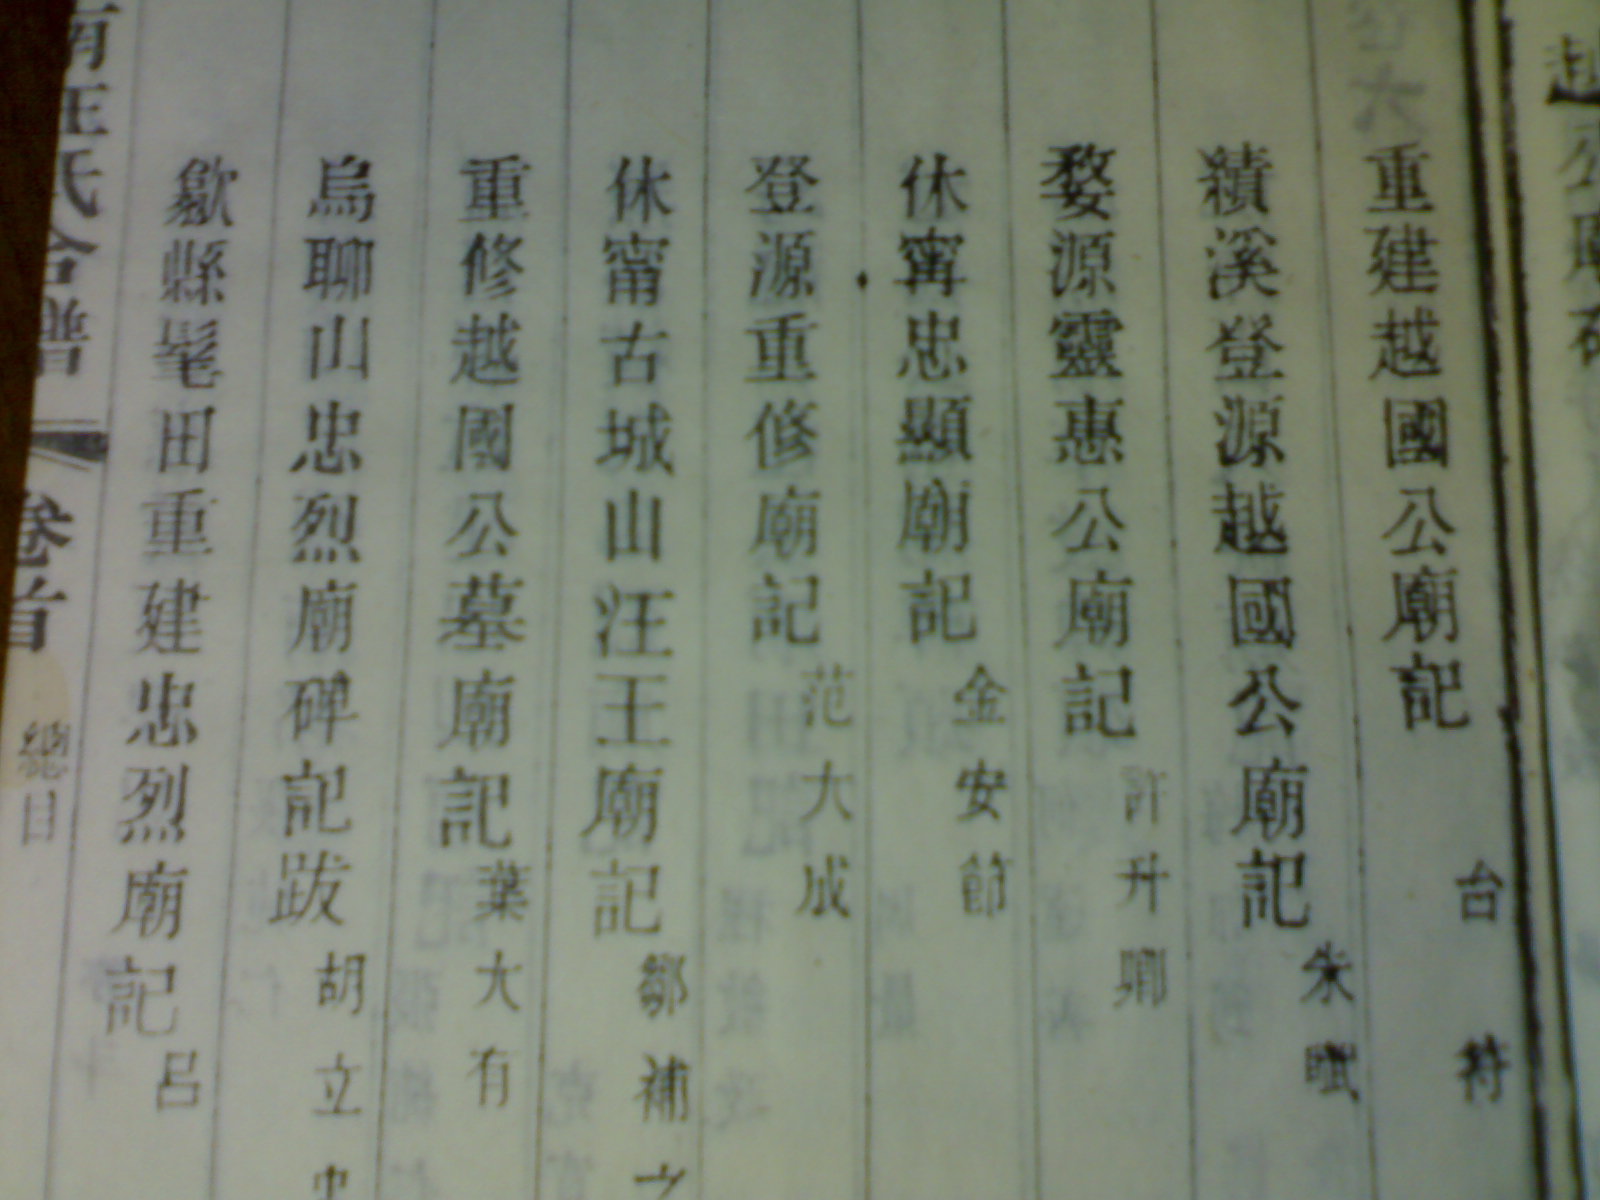 重建越國公廟記 台符
績溪登源越國公廟記 朱賦
婺源靈惠公廟記 許升卿
休甯忠顯廟記 金安節
登源重修廟記 范大成
休甯古城山汪王廟記 鄒補之
重修越國公墓廟記 葉大有
烏聊山忠烈廟碑記跋 胡立忠
歙縣髦田重建忠烈廟記 呂
南汪氏合譜 卷首 總目